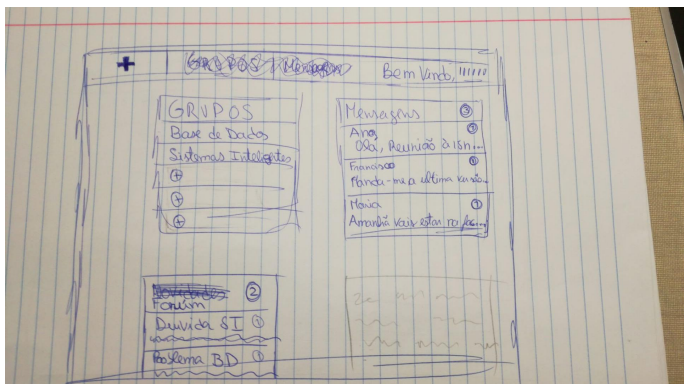 + GRUPOS Mensagens Bem Vindo,
GRUPOS
Base de Dados
Sistemas Inteligentes
+
+
+
Mensagens 3
Ana
Olá, Reunião à 18h...
Francisco 1
Manda-me a ultima versão..
Maria 1
Amanhã vais estar na
Novidades 2
Forum
Duvida SI 1
Problema BD 1